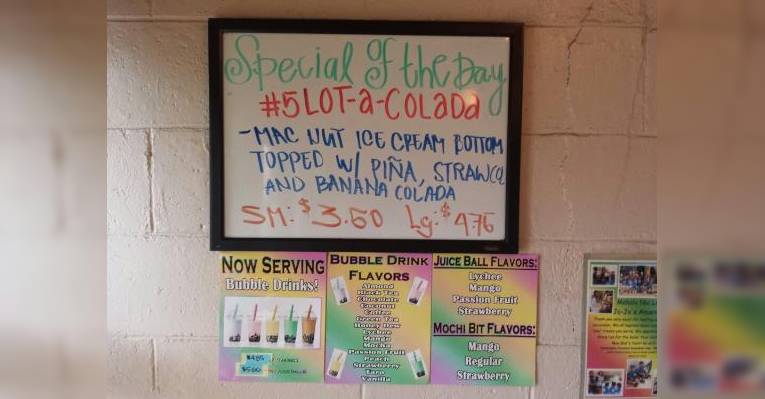 Special of the Day
#5 LOT-a-COLADA
-MAC NUT ICE CREAM BOTTOM
TOPPED W/ PIÑA, STRAWCO
AND BANANA COLADA
SM: $3.50 Lg: $4.75
NOW SERVING
Bubble Drinks!
$4.85
$5.00
BUBBLE DRINK
FLAVORS
Almond
Black Tea
Chocolate
Coconut
Coffee
Green Tea
Honey Dew
Lychee
Mango
Mocha
Passion Fruit
Peach
Strawberry
Taro
Vanilla
JUICE BALL FLAVORS:
Lychee
Mango
Passion Fruit
Strawberry
MOCHI BIT FLAVORS:
Mango
Regular
Strawberry